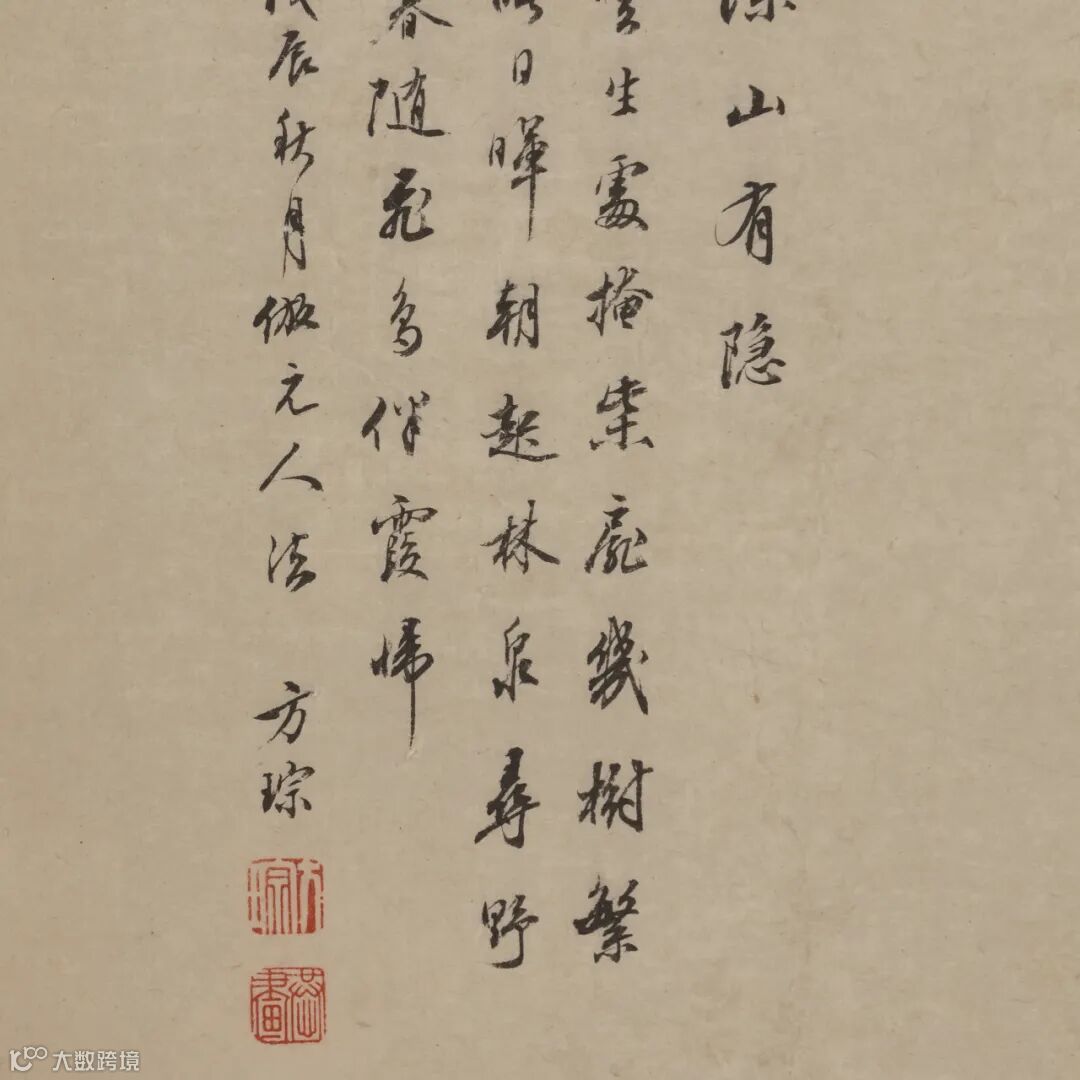 深山有隐
雲生處掩柴扉幾樹繁
日暉朝起林泉尋野
暮随飛鳥伴霞歸
戊辰秋月倣元人法 方琮
大数跨境